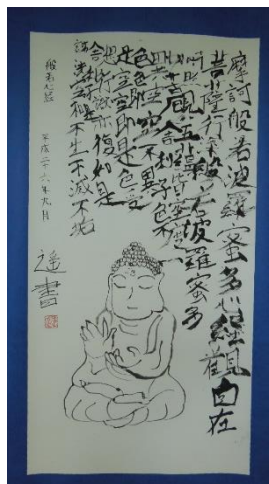 摩訶般若波羅蜜多心経観自在
菩薩行深般若波羅蜜多
時照見五蘊皆空度
舎利子色不
異空空不異
色色即
是空空即是色受
想行識亦復如是
舎利子是
諸法空相不生不滅不垢
般若心経
平成二十六年九月
遥書